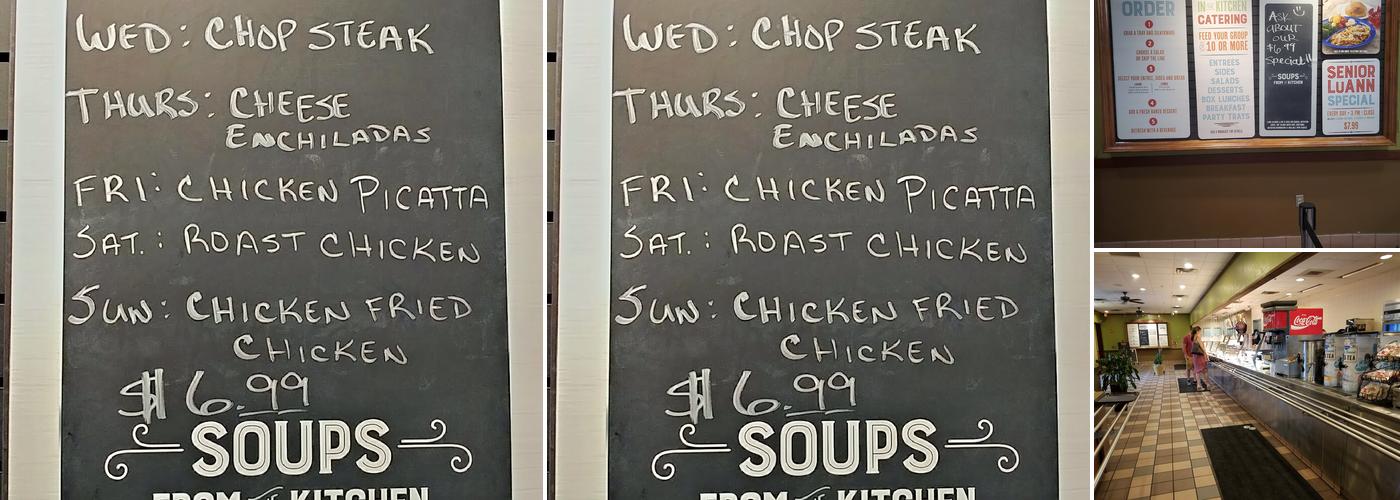 WED: CHOP STEAK
THURS: CHEESE
ENCHILADAS
FRI: CHICKEN PICATTA
SAT.: ROAST CHICKEN
SUN: CHICKEN FRIED
CHICKEN
$6.99
SOUPS
FROM THE KITCHEN
WED: CHOP STEAK
THURS: CHEESE
ENCHILADAS
FRI: CHICKEN PICATTA
SAT.: ROAST CHICKEN
SUN: CHICKEN FRIED
CHICKEN
$6.99
SOUPS
FROM THE KITCHEN
ORDER
1
GRAB A TRAY AND SILVERWARE
2
CHOOSE A SALAD
OR SKIP THE LINE
3
SELECT YOUR ENTREE, SIDES AND BREAD
4
ADD A FRESH BAKED DESSERT
5
REFRESH WITH A BEVERAGE
IN THE KITCHEN
CATERING
FEED YOUR GROUP
OF 10 OR MORE
ENTREES
SIDES
SALADS
DESSERTS
BOX LUNCHES
BREAKFAST
PARTY TRAYS
ASK
ABOUT
OUR
$6.99
Special!!
SOUPS
FROM THE KITCHEN
SENIOR
LUANN
SPECIAL
$7.99
Coca-Cola
TEA